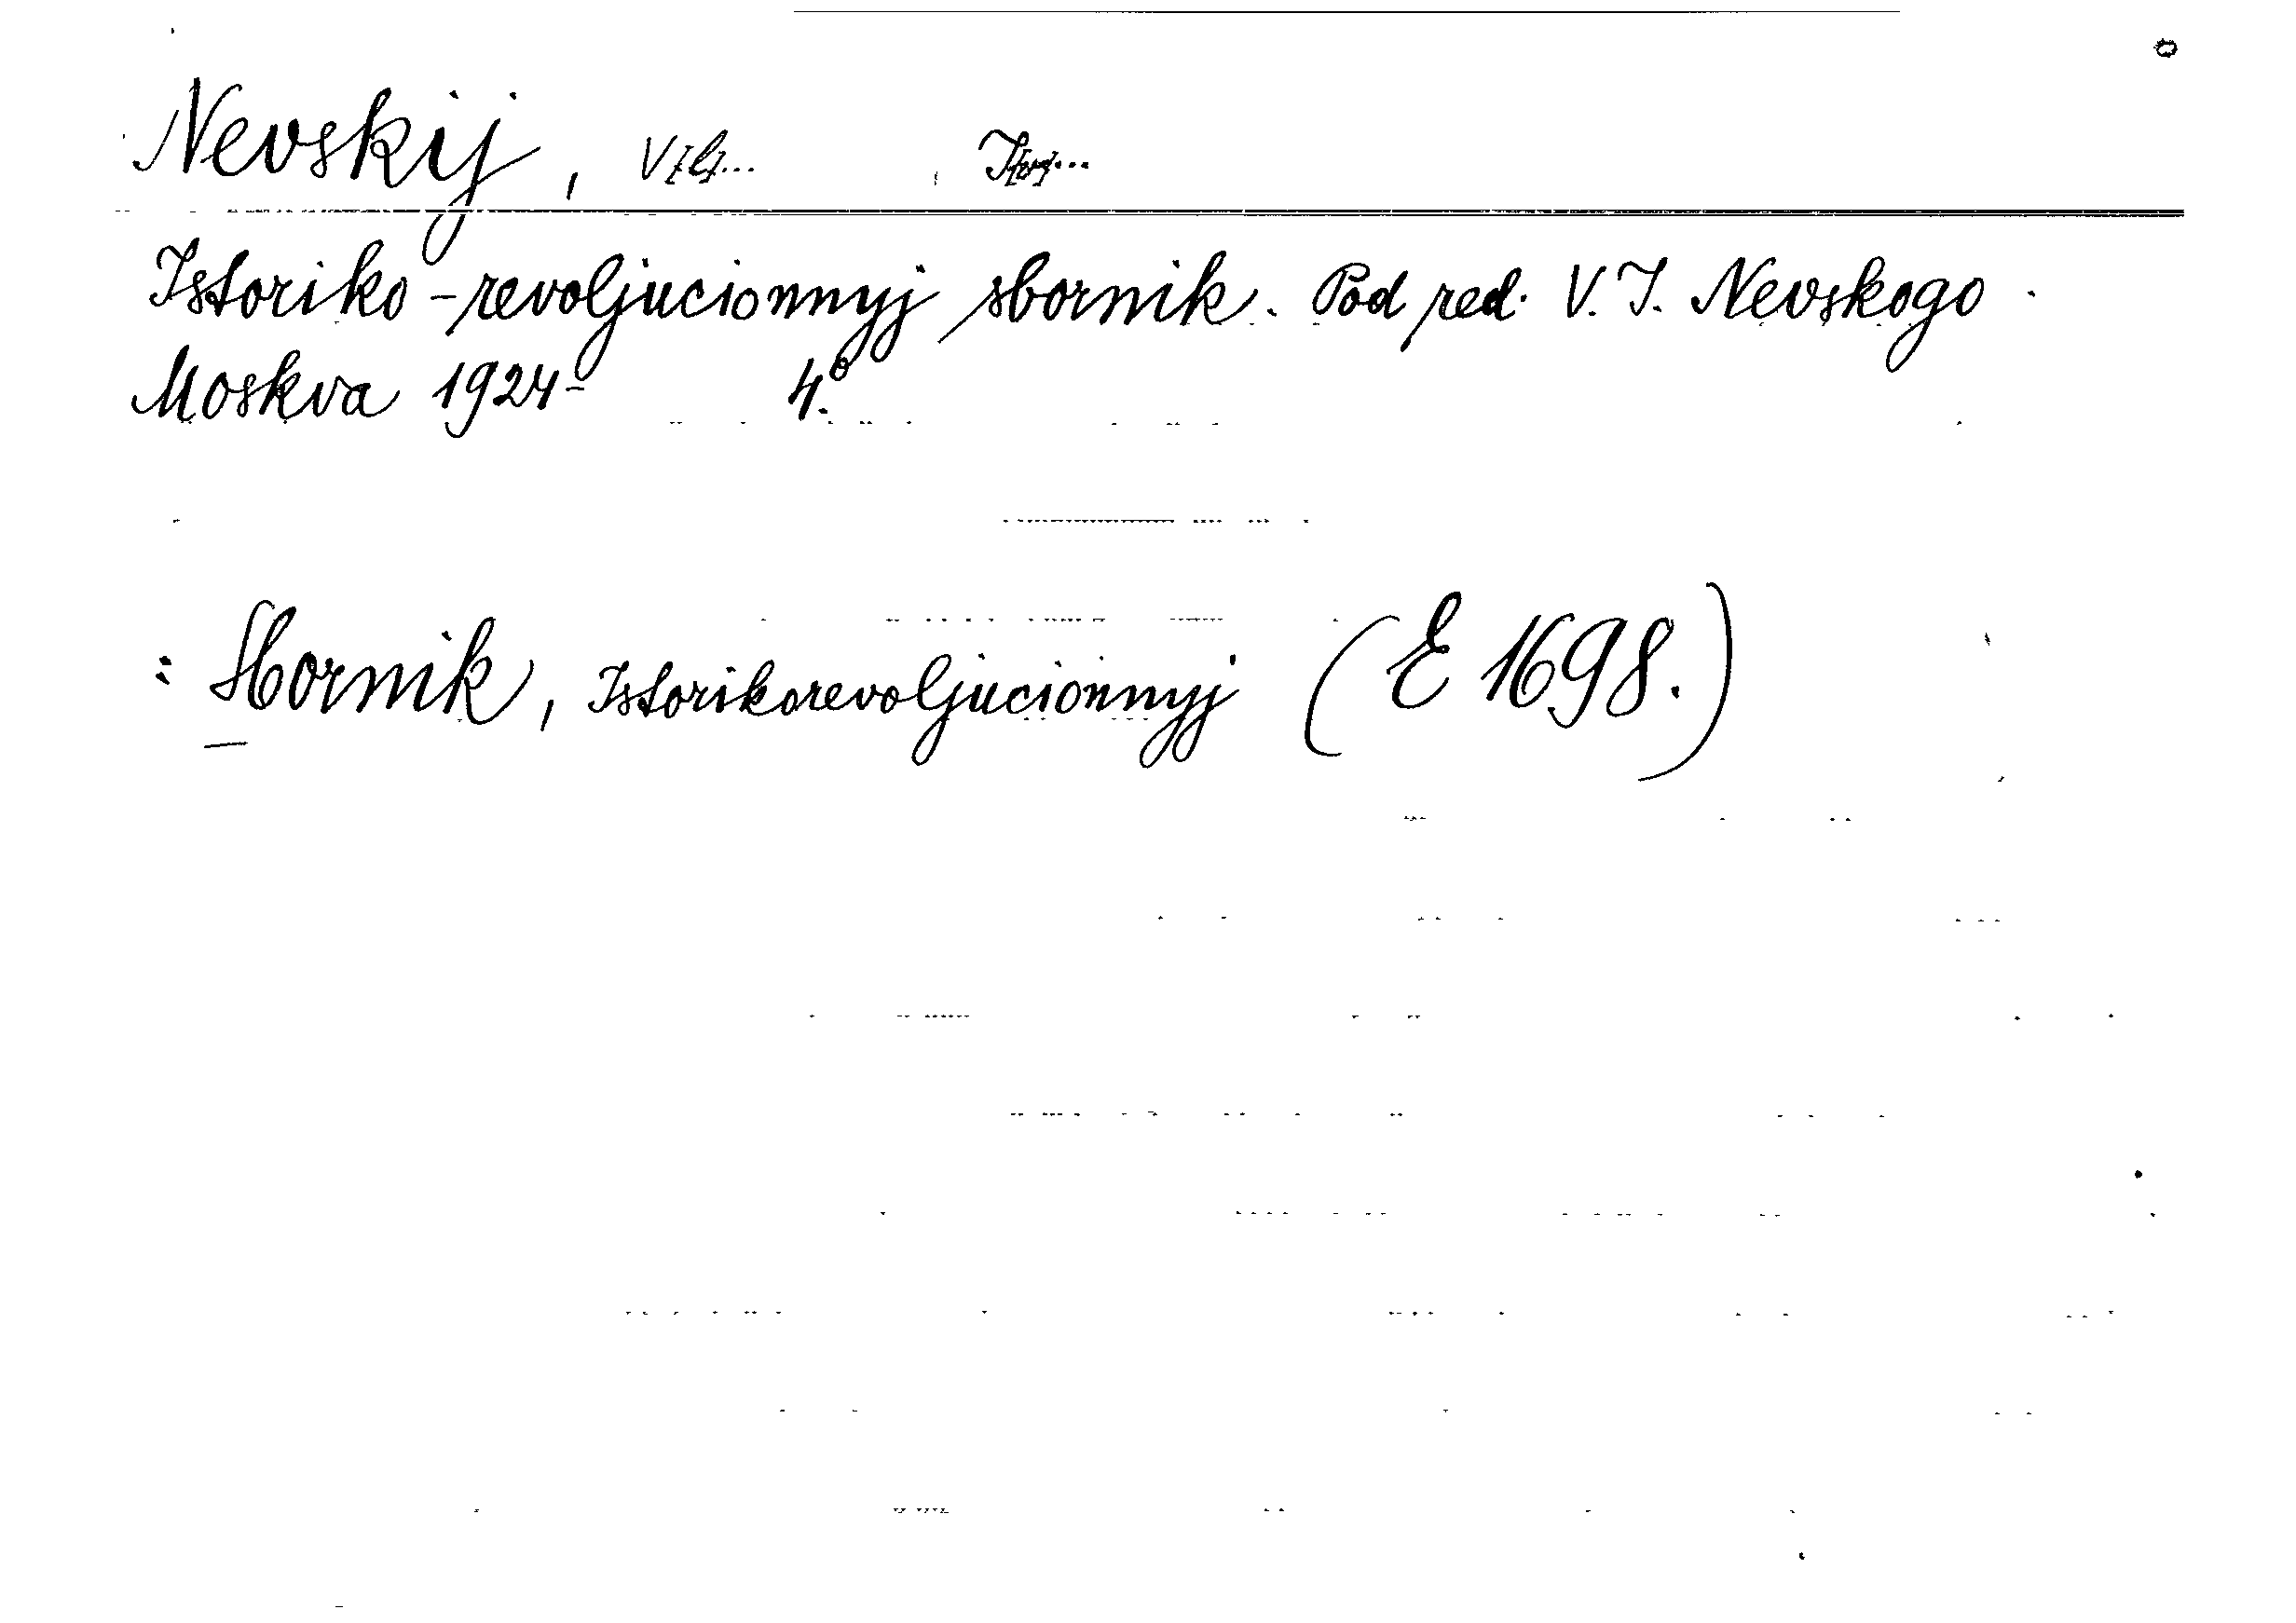 Nevskij, V[l]... , I[v]...
Istoriko-revoljucionnyj sbornik. Pod red. V. I. Nevskogo.
Moskva 1924- 4.°
: Sbornik, Istorikorevoljucionnyj (E 1698.)